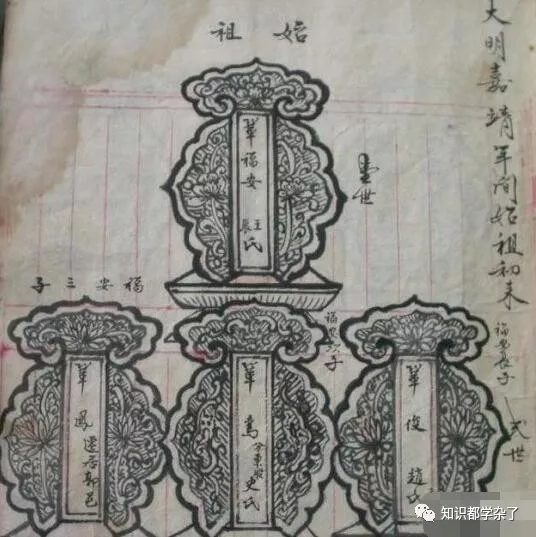 大明嘉靖年間始祖初来
始祖
壹世
華福安
王
氏
福安長子
弍世
華俊
趙氏
福安次子
華
史氏
福安三子
華鳳
知识都学杂了